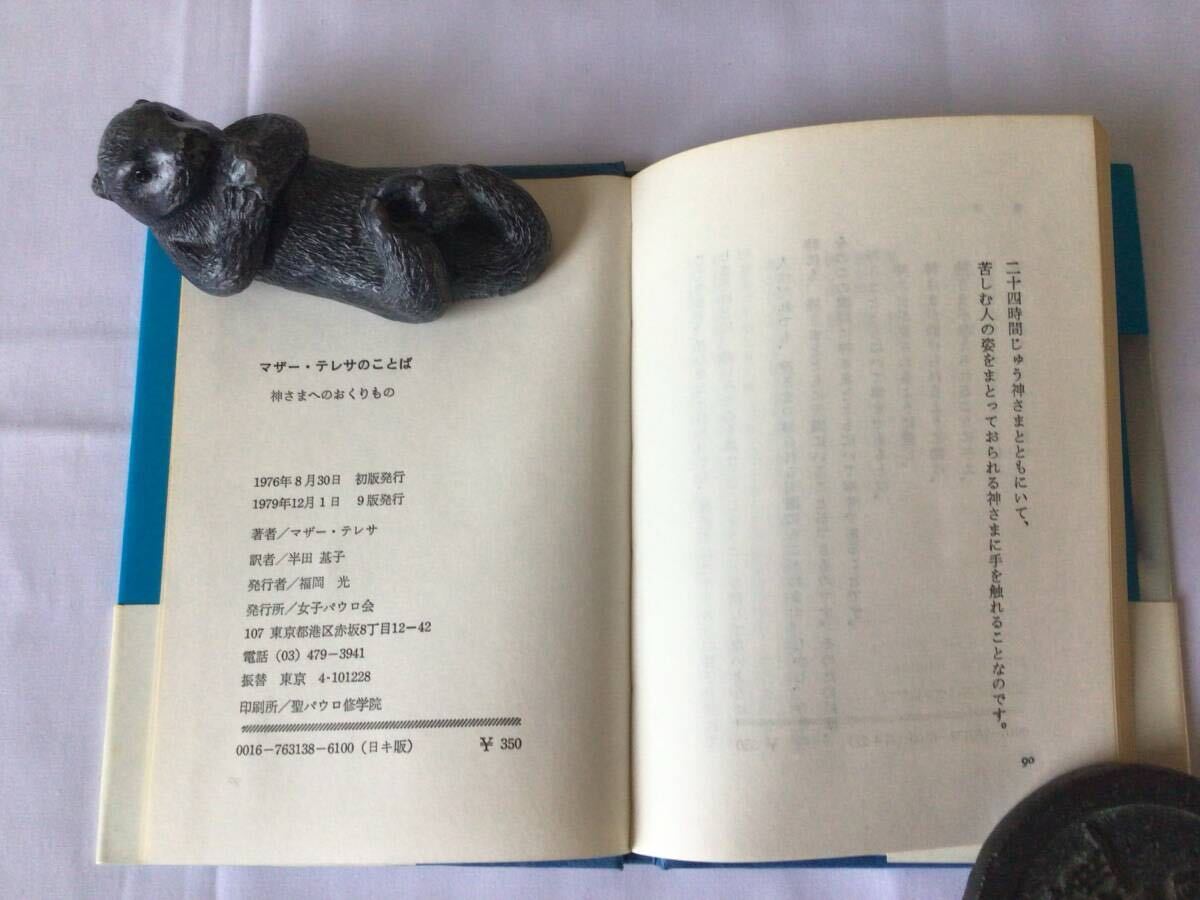 二十四時間じゅう神さまとともにいて、
苦しむ人の姿をまとっておられる神さまに手を触れることなのです。
90
マザー・テレサのことば
神さまへのおくりもの
1976年8月30日 初版発行
1979年12月1日 9版発行
著者/マザー・テレサ
訳者/半田 基子
発行者/福岡 光
発行所/女子パウロ会
107 東京都港区赤坂8丁目12-42
電話 (03) 479-3941
振替 東京 4-101228
印刷所/聖パウロ修学院
0016-763138-6100 (日キ販) ¥ 350